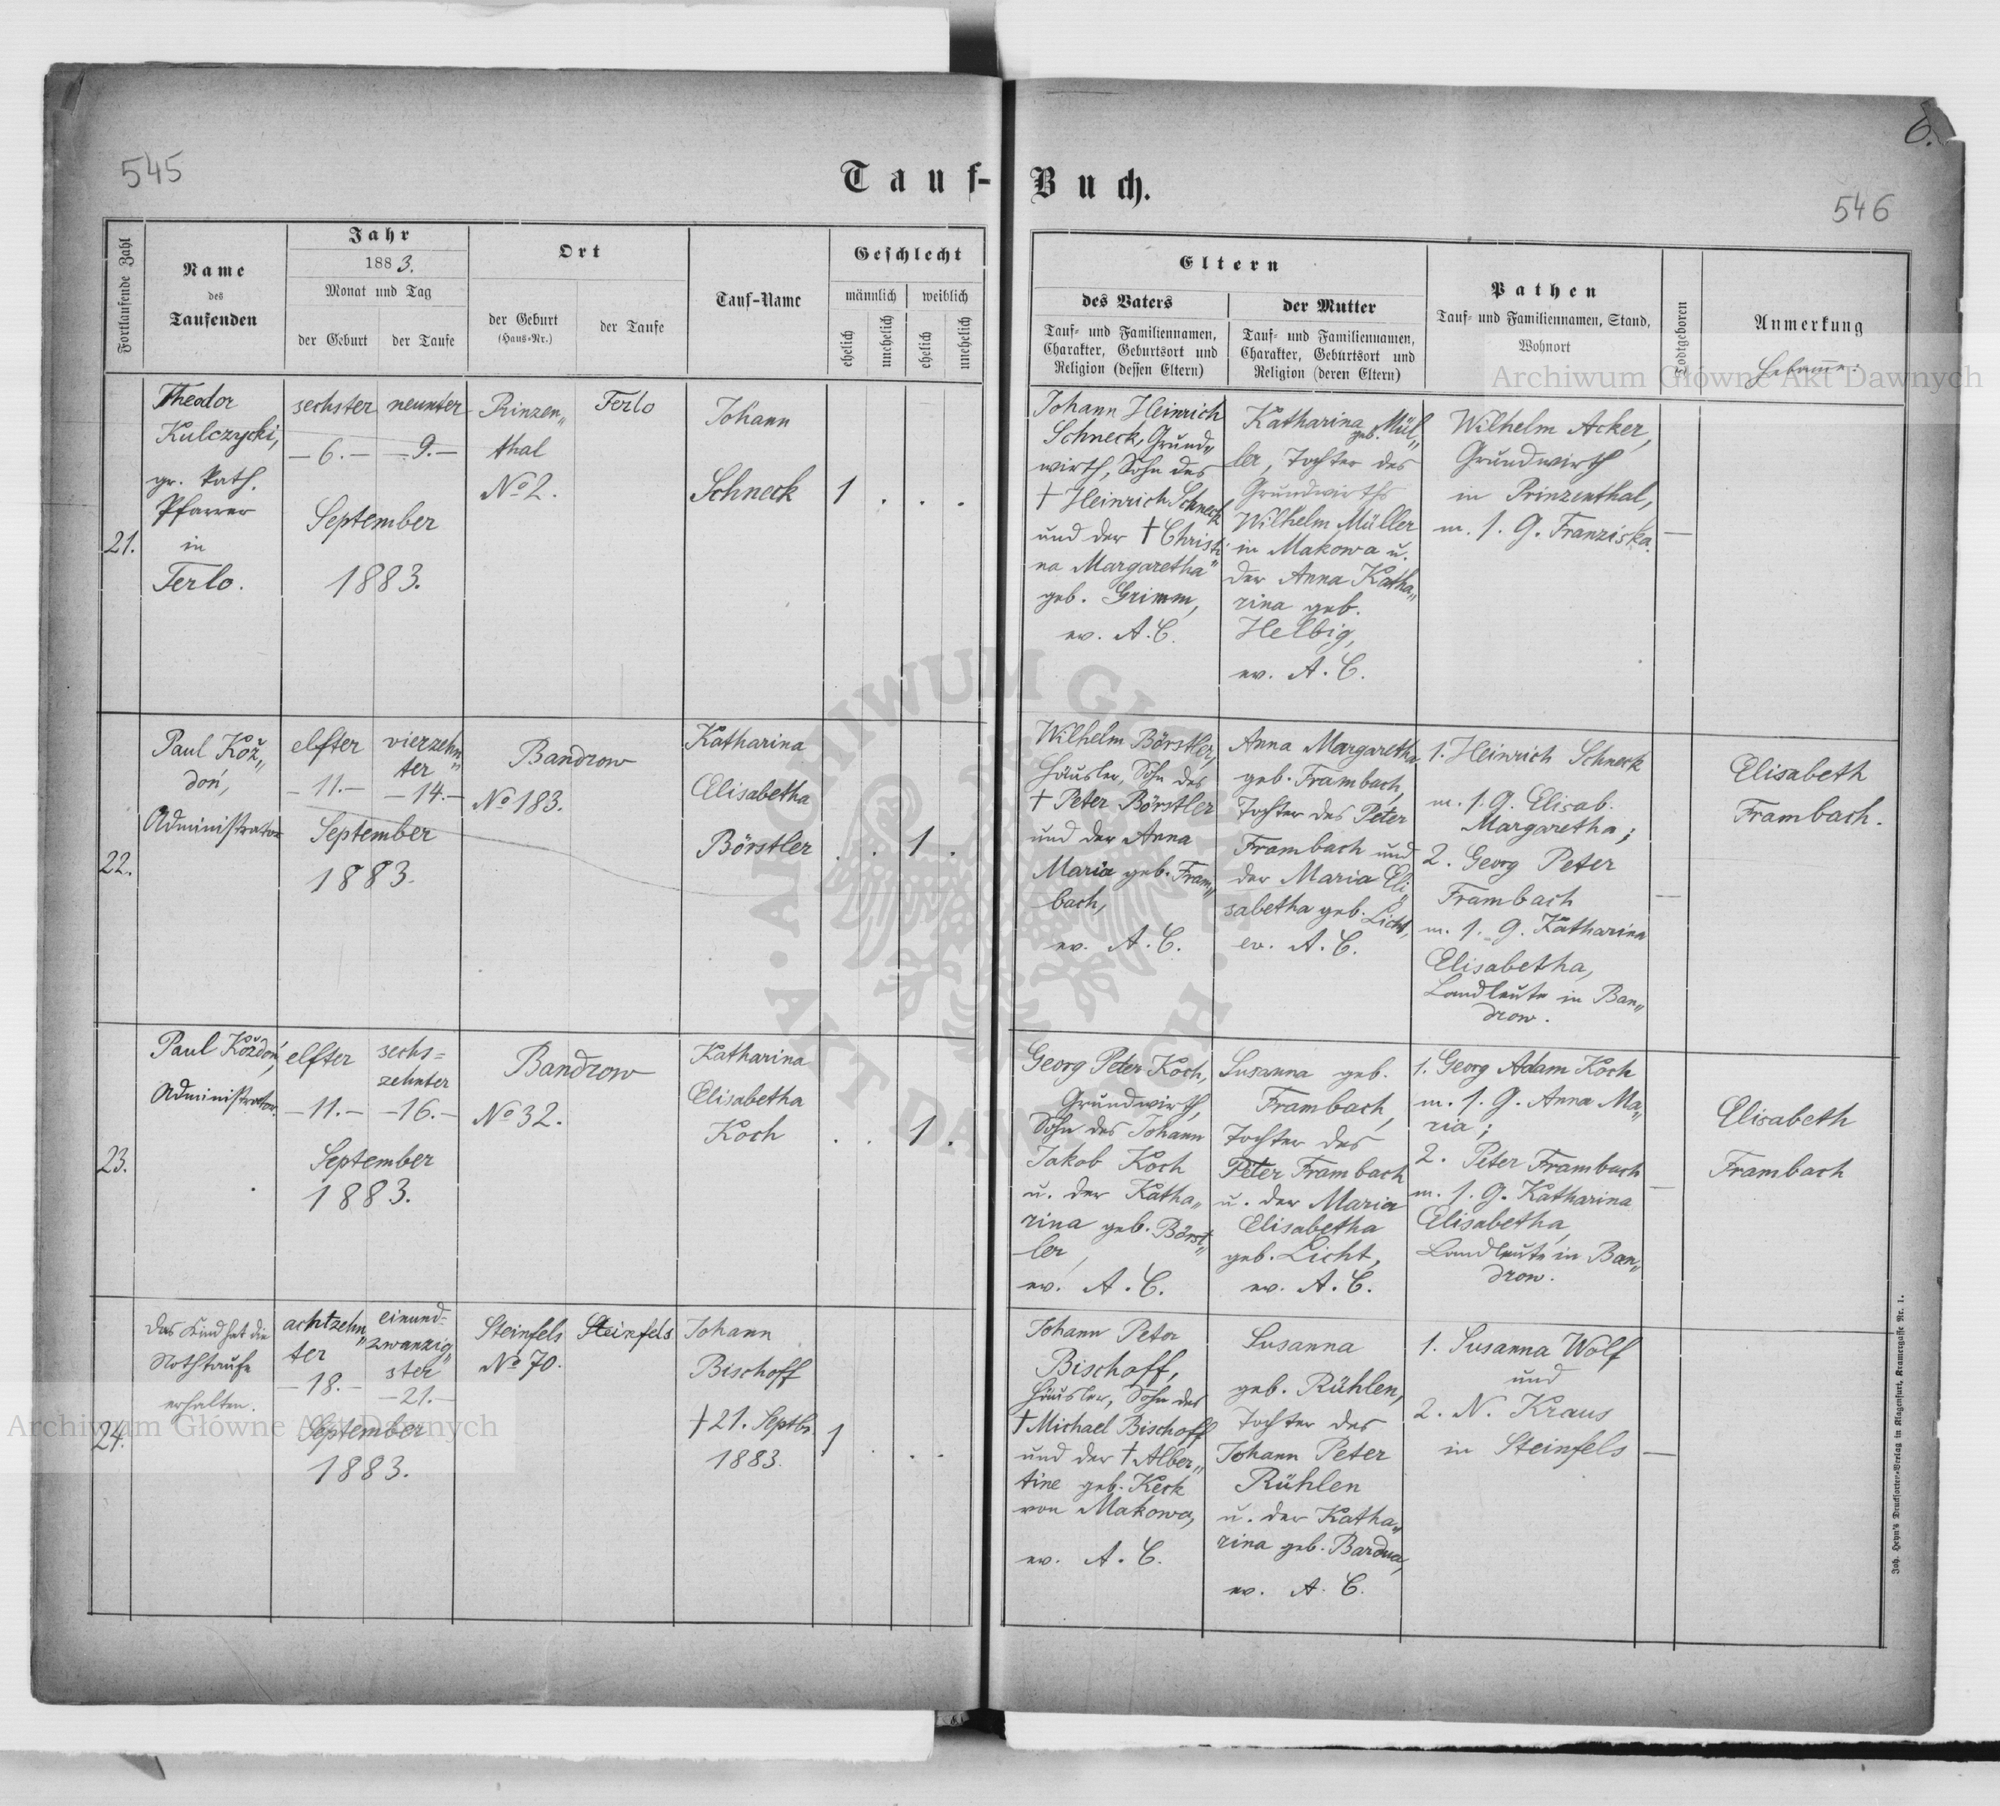 545
Tauf-Buch.
546
6.
Fortlaufende Zahl
Name
des
Taufenden
Jahr
1883.
Monat und Tag
der Geburt
der Taufe
Ort
der Geburt
(Haus-Nr.)
der Taufe
Tauf-Name
Geschlecht
männlich
weiblich
ehelich
unehelich
ehelich
unehelich
Eltern
des Vaters
Tauf- und Familiennamen,
Charakter, Geburtsort und
Religion (dessen Eltern)
der Mutter
Tauf- und Familiennamen,
Charakter, Geburtsort und
Religion (deren Eltern)
Pathen
Tauf- und Familiennamen, Stand,
Wohnort
Todtgeboren
Anmerkung
Hebamme:
21.
Theodor
Kulczycki,
gr. kath.
Pfarrer
in
Terlo.
sechster
— 6. —
neunter
— 9. —
September
1883.
Prinzen„
thal
No 2.
Terlo
Johann
Schneck
1 . . .
Johann Heinrich
Schneck, Grund„
wirth, Sohn des
† Heinrich Schneck
und der † Christi„
na Margaretha
geb. Grimm,
ev. A. C.
Katharina
geb. Mül„
ler, Tochter des
Grundwirths
Wilhelm Müller
in Makowa u.
der Anna Katha„
rina geb.
Helbig,
ev. A. C.
Wilhelm Acker,
Grundwirth
in Prinzenthal,
m. s. G. Franziska.
—
22.
Paul Kož„
doń,
Administrator
elfter
— 11. —
vierzehn„
ter
— 14. —
September
1883.
Bandrow
No 183.
Katharina
Elisabetha
Börstler
. . 1 .
Wilhelm Börstler,
Häusler, Sohn des
† Peter Börstler
und der Anna
Maria geb. Fram„
bach,
ev. A. C.
Anna Margaretha
geb. Frambach,
Tochter des Peter
Frambach und
der Maria Eli„
sabetha geb. Licht,
ev. A. C.
1. Heinrich Schneck
m. s. G. Elisab.
Margaretha;
2. Georg Peter
Frambach
m. s. G. Katharina
Elisabetha,
Landleute in Ban„
drow.
—
Elisabeth
Frambach.
23.
Paul Koždoń,
Administrator.
elfter
— 11. —
sechs=
zehnter
— 16. —
September
1883.
Bandrow
No 32.
Katharina
Elisabetha
Koch
. . 1 .
Georg Peter Koch,
Grundwirth,
Sohn des Johann
Jakob Koch
u. der Katha„
rina geb. Börst„
ler,
ev. A. C.
Susanna geb.
Frambach,
Tochter des
Peter Frambach
u. der Maria
Elisabetha
geb. Licht,
ev. A. C.
1. Georg Adam Koch
m. s. G. Anna Ma„
ria;
2. Peter Frambach
m. s. G. Katharina
Elisabetha,
Landleute in Ban„
drow.
—
Elisabeth
Frambach
24.
Das Kind hat die
Nothtaufe
erhalten.
achtzehn„
ter
— 18. —
einund-
zwanzig„
ster
— 21. —
September
1883.
Steinfels
No 70.
Steinfels
Johann
Bischoff
† 21. Septbr.
1883.
1 . . .
Johann Peter
Bischoff,
Häusler, Sohn des
† Michael Bischoff
und der † Alber„
tine geb. Keck
von Makowa,
ev. A. C.
Susanna
geb. Rühlen,
Tochter des
Johann Peter
Rühlen
u. der Katha„
rina geb. Bardua,
ev. A. C.
1. Susanna Wolf
und
2. N. Kraus
in Steinfels
—
Joh. Heyn's Drucksorten-Verlag in Klagenfurt, Kramergasse Nr. 1.
Archiwum Główne Akt Dawnych
Archiwum Główne Akt Dawnych